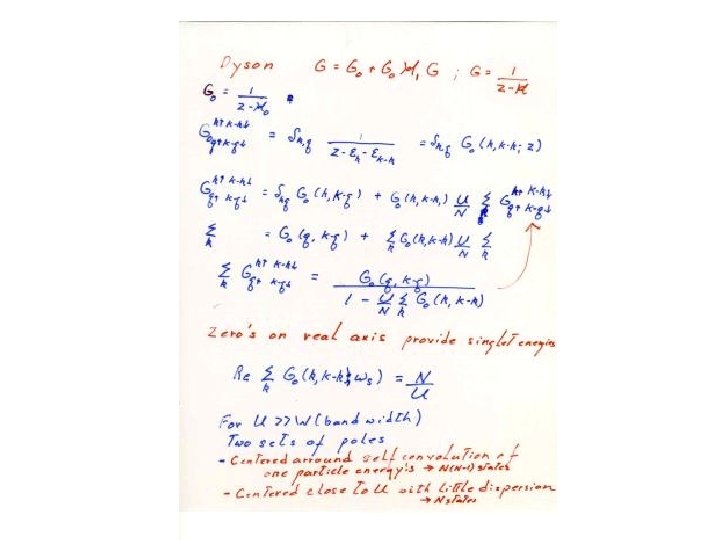 Dyson G = G₀ + G₀ H₁ G ; G = 1/(z-H)
G₀ = 1/(z-H₀)
G₀^{k↑ K-k↓}_{q↑ K-q↓} = δ_{k,q} 1/(z-ε_k-ε_{K-k}) = δ_{k,q} G₀(k,K-k; z)
G^{k↑ K-k↓}_{q↑ K-q↓} = δ_{kq} G₀(k,K-q) + G₀(k,K-k) U/N Σ G^{k↑ K-k↓}_{q↑ K-q↓}
Σ_k = G₀(q,K-q) + Σ_k G₀(k,K-k) U/N Σ_k
Σ_k G^{k↑ K-k↓}_{q↑ K-q↓} = G₀(q,K-q) / (1 - U/N Σ_k G₀(k,K-k))
Zero's on real axis provide singlet energies
Re Σ_k G₀(k,K-k; ω_s) = N/U
For U >> W (band width)
Two sets of poles
- Centered arround self convolution of
one particle energy's → N(N-1) states
- Centered close to U with little dispersion
→ N states